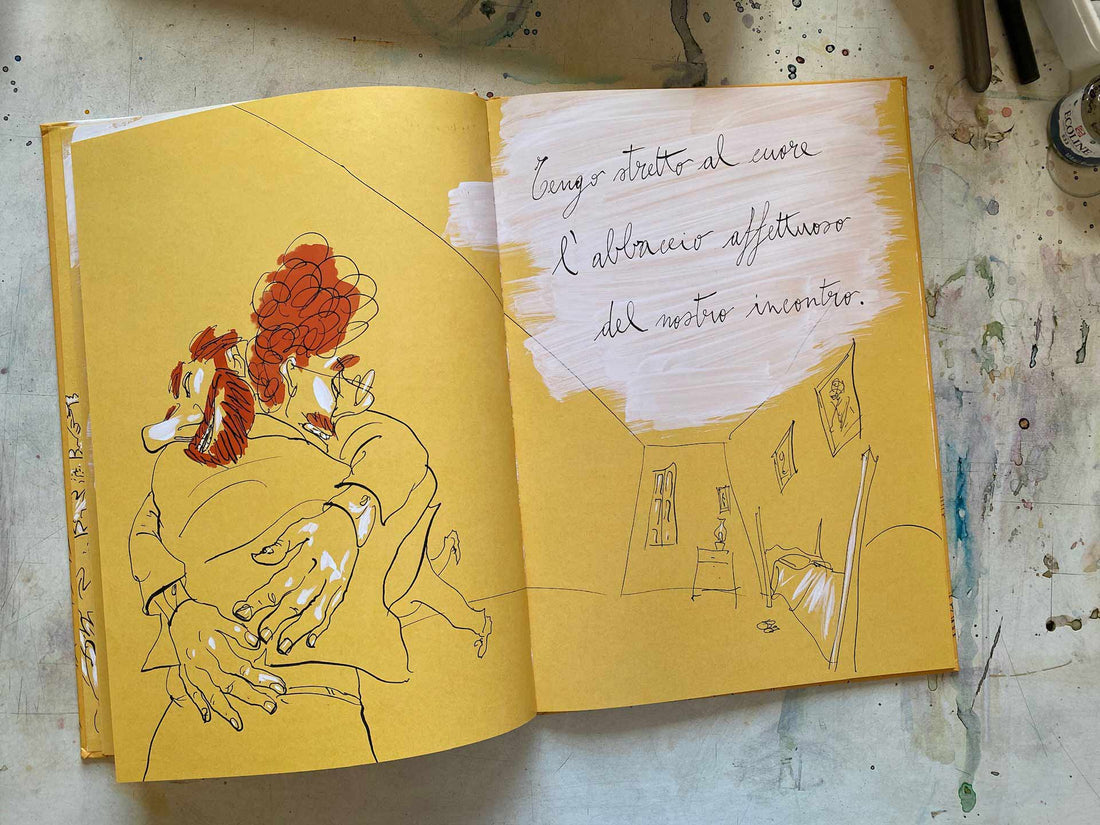 Tengo stretto al cuore
l'abbraccio affettuoso
del nostro incontro.
ECOLINE